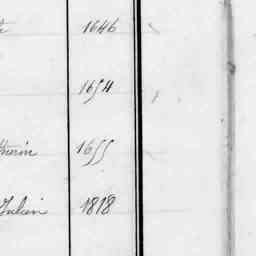 1646
1654
1655
Julien 1818